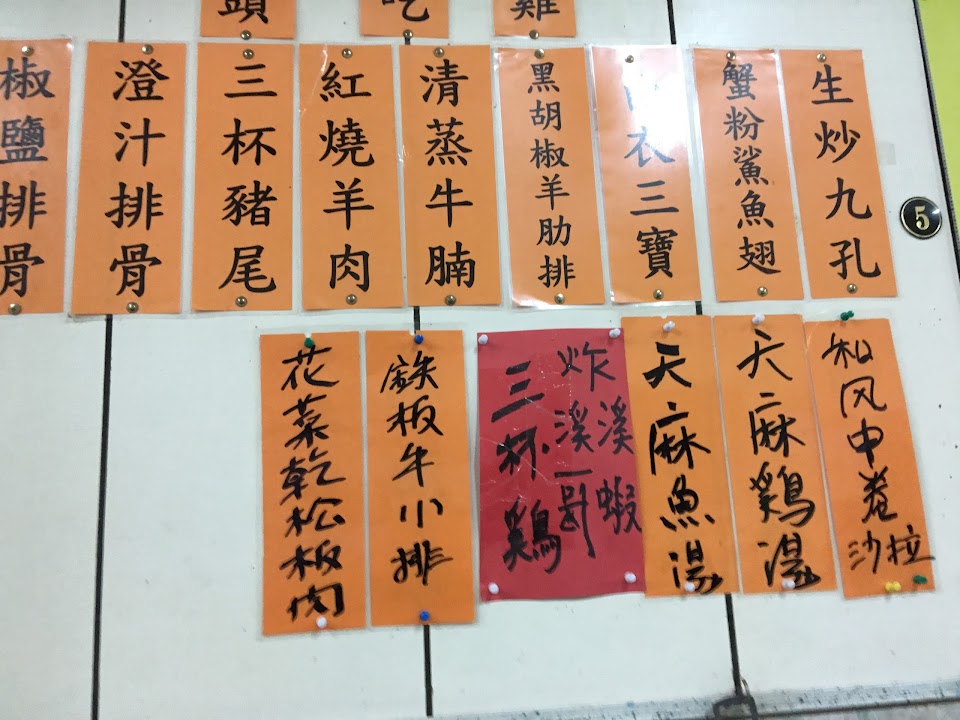 雞
吃
頭
生炒九孔
蟹粉鯊魚翅
衣三寶
黑胡椒羊肋排
清蒸牛腩
紅燒羊肉
三杯豬尾
澄汁排骨
椒鹽排骨
和风中卷沙拉
天麻鷄湯
天麻魚湯
溪蝦
炸溪
三杯鷄
鉄板牛小排
花菜乾松板肉
5